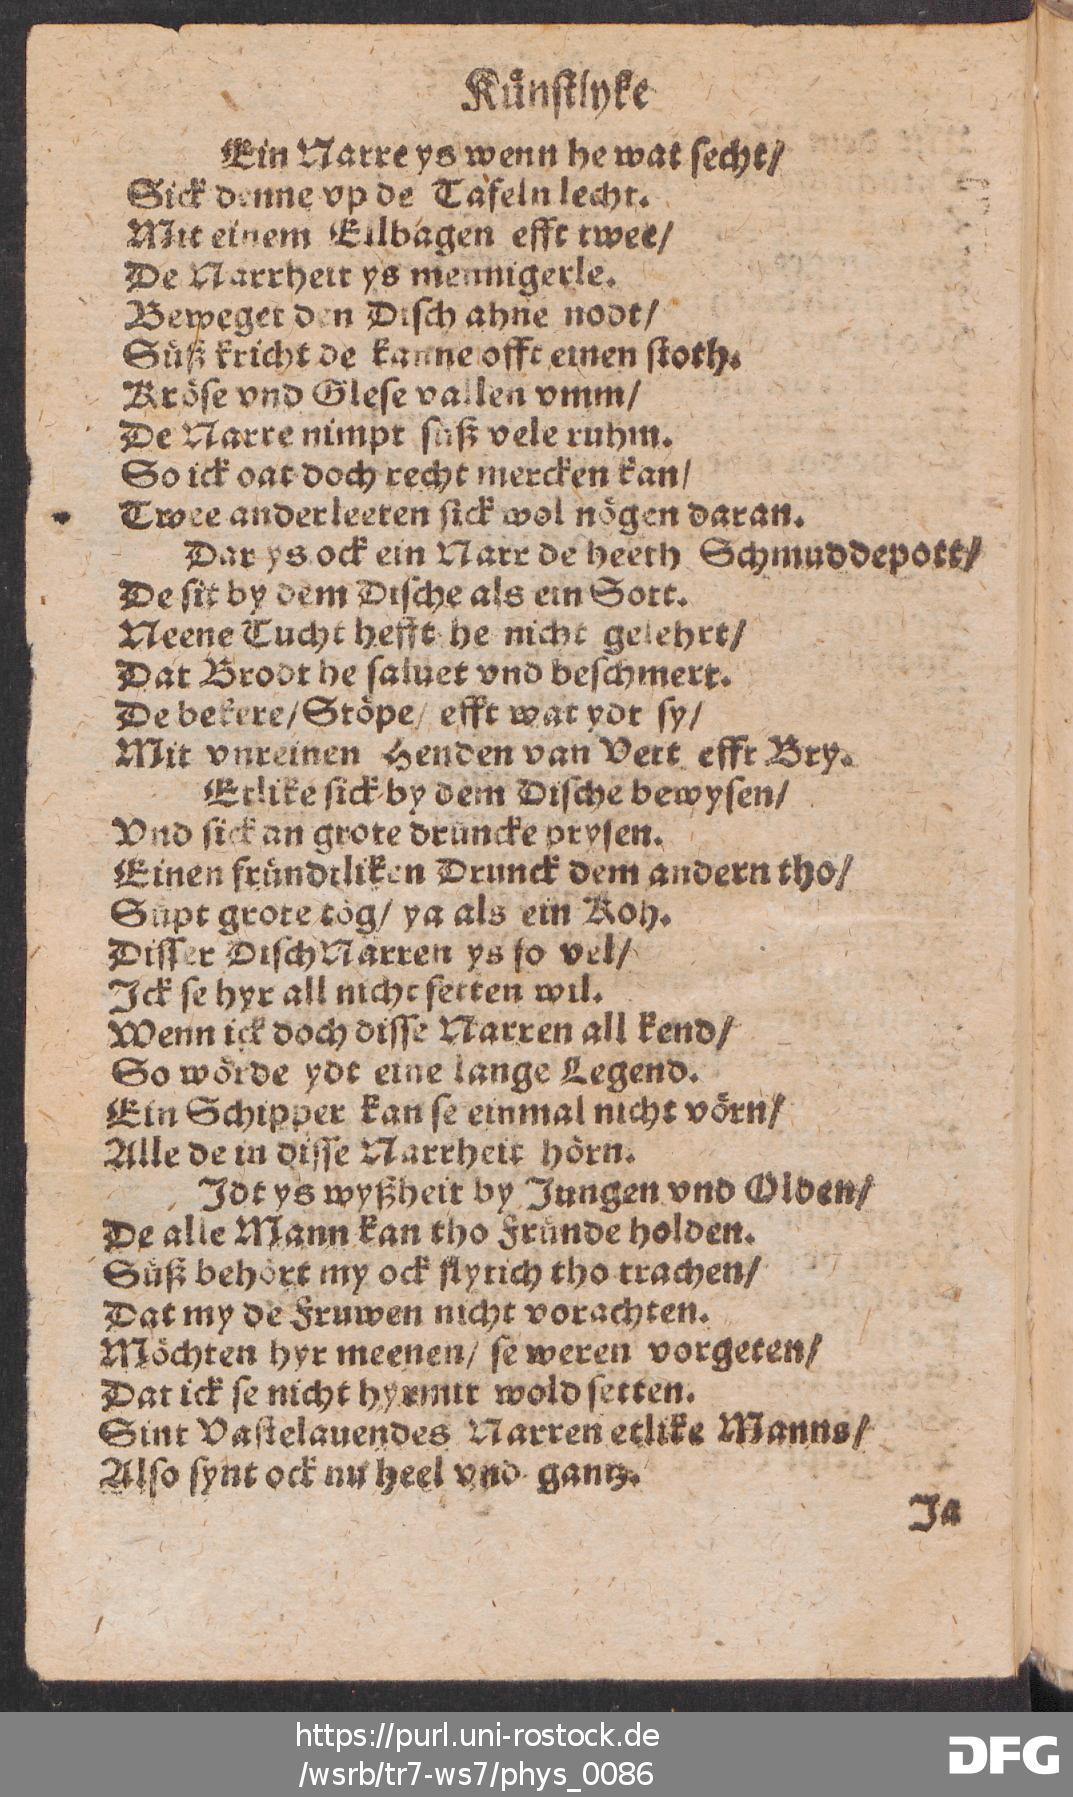 Künstlyke
Ein Narre ys wenn he wat secht/
Sick denne vp de Tafeln lecht.
Mit einem Ellbagen efft twee/
De Narrheit ys mennigerle.
Beweget den Disch ahne nodt/
Süß kricht de kanne offt einen stoth.
Kröse vnd Glese vallen vmm/
De Narre nimpt süß vele ruhm.
So ick dat doch recht mercken kan/
Twee anderleeten sick wol nögen daran.
Dar ys ock ein Narr de heeth Schmuddepott/
De sit by dem Dische als ein Sott.
Neene Tucht hefft he nicht gelehrt/
Dat Brodt he saluet vnd beschmert.
De bekere/ Stöpe/ efft wat ydt sy/
Mit vnreinen Henden van Vett efft Bry.
Etlike sick by dem Dische bewysen/
Vnd sick an grote drüncke prysen.
Einen fründtliken Drunck dem andern tho/
Süpt grote tög/ ya als ein Koh.
Disser Disch Narren ys so vel/
Ick se hyr all nicht setten wil.
Wenn ick doch disse Narren all kend/
So wörde ydt eine lange Legend.
Ein Schipper kan se einmal nicht vörn/
Alle de in disse Narrheit hörn.
Idt ys wyßheit by Jungen vnd Olden/
De alle Mann kan tho Fründe holden.
Süß behört my ock flytich tho trachen/
Dat my de Fruwen nicht vorachten.
Möchten hyr meenen/ se weren vorgeten/
Dat ick se nicht hyrmit wold setten.
Sint Vastelauendes Narren etlike Manns/
Also synt ock nu heel vnd gantz.
Ja
https://purl.uni-rostock.de
/wsrb/tr7-ws7/phys_0086
DFG